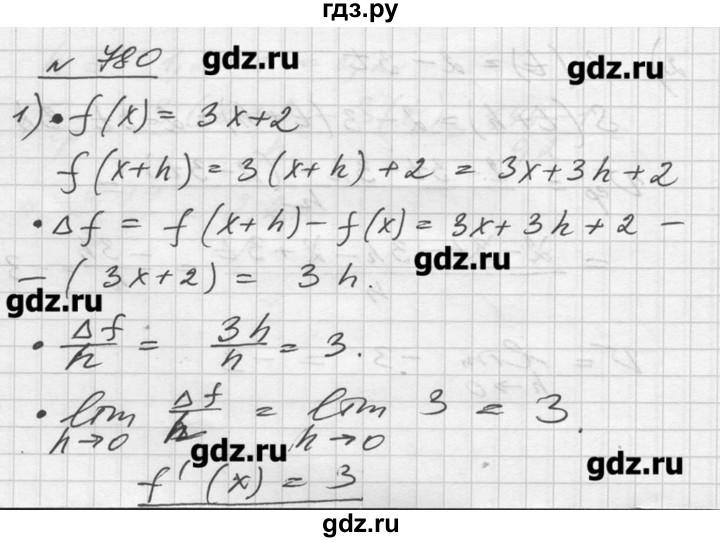 гдз.ру
N 780
gdz.ru
gdz.ru
1) • f(x) = 3x+2
f(x+h) = 3(x+h)+2 = 3x+3h+2
• Δf = f(x+h) - f(x) = 3x+3h+2 -
gdz.ru
- (3x+2) = 3h.
gdz.ru
• Δf/h = 3h/h = 3.
• lim Δf/h = lim 3 = 3.
h→0 h→0
gdz.ru
gdz.ru
f'(x) = 3
gdz.ru